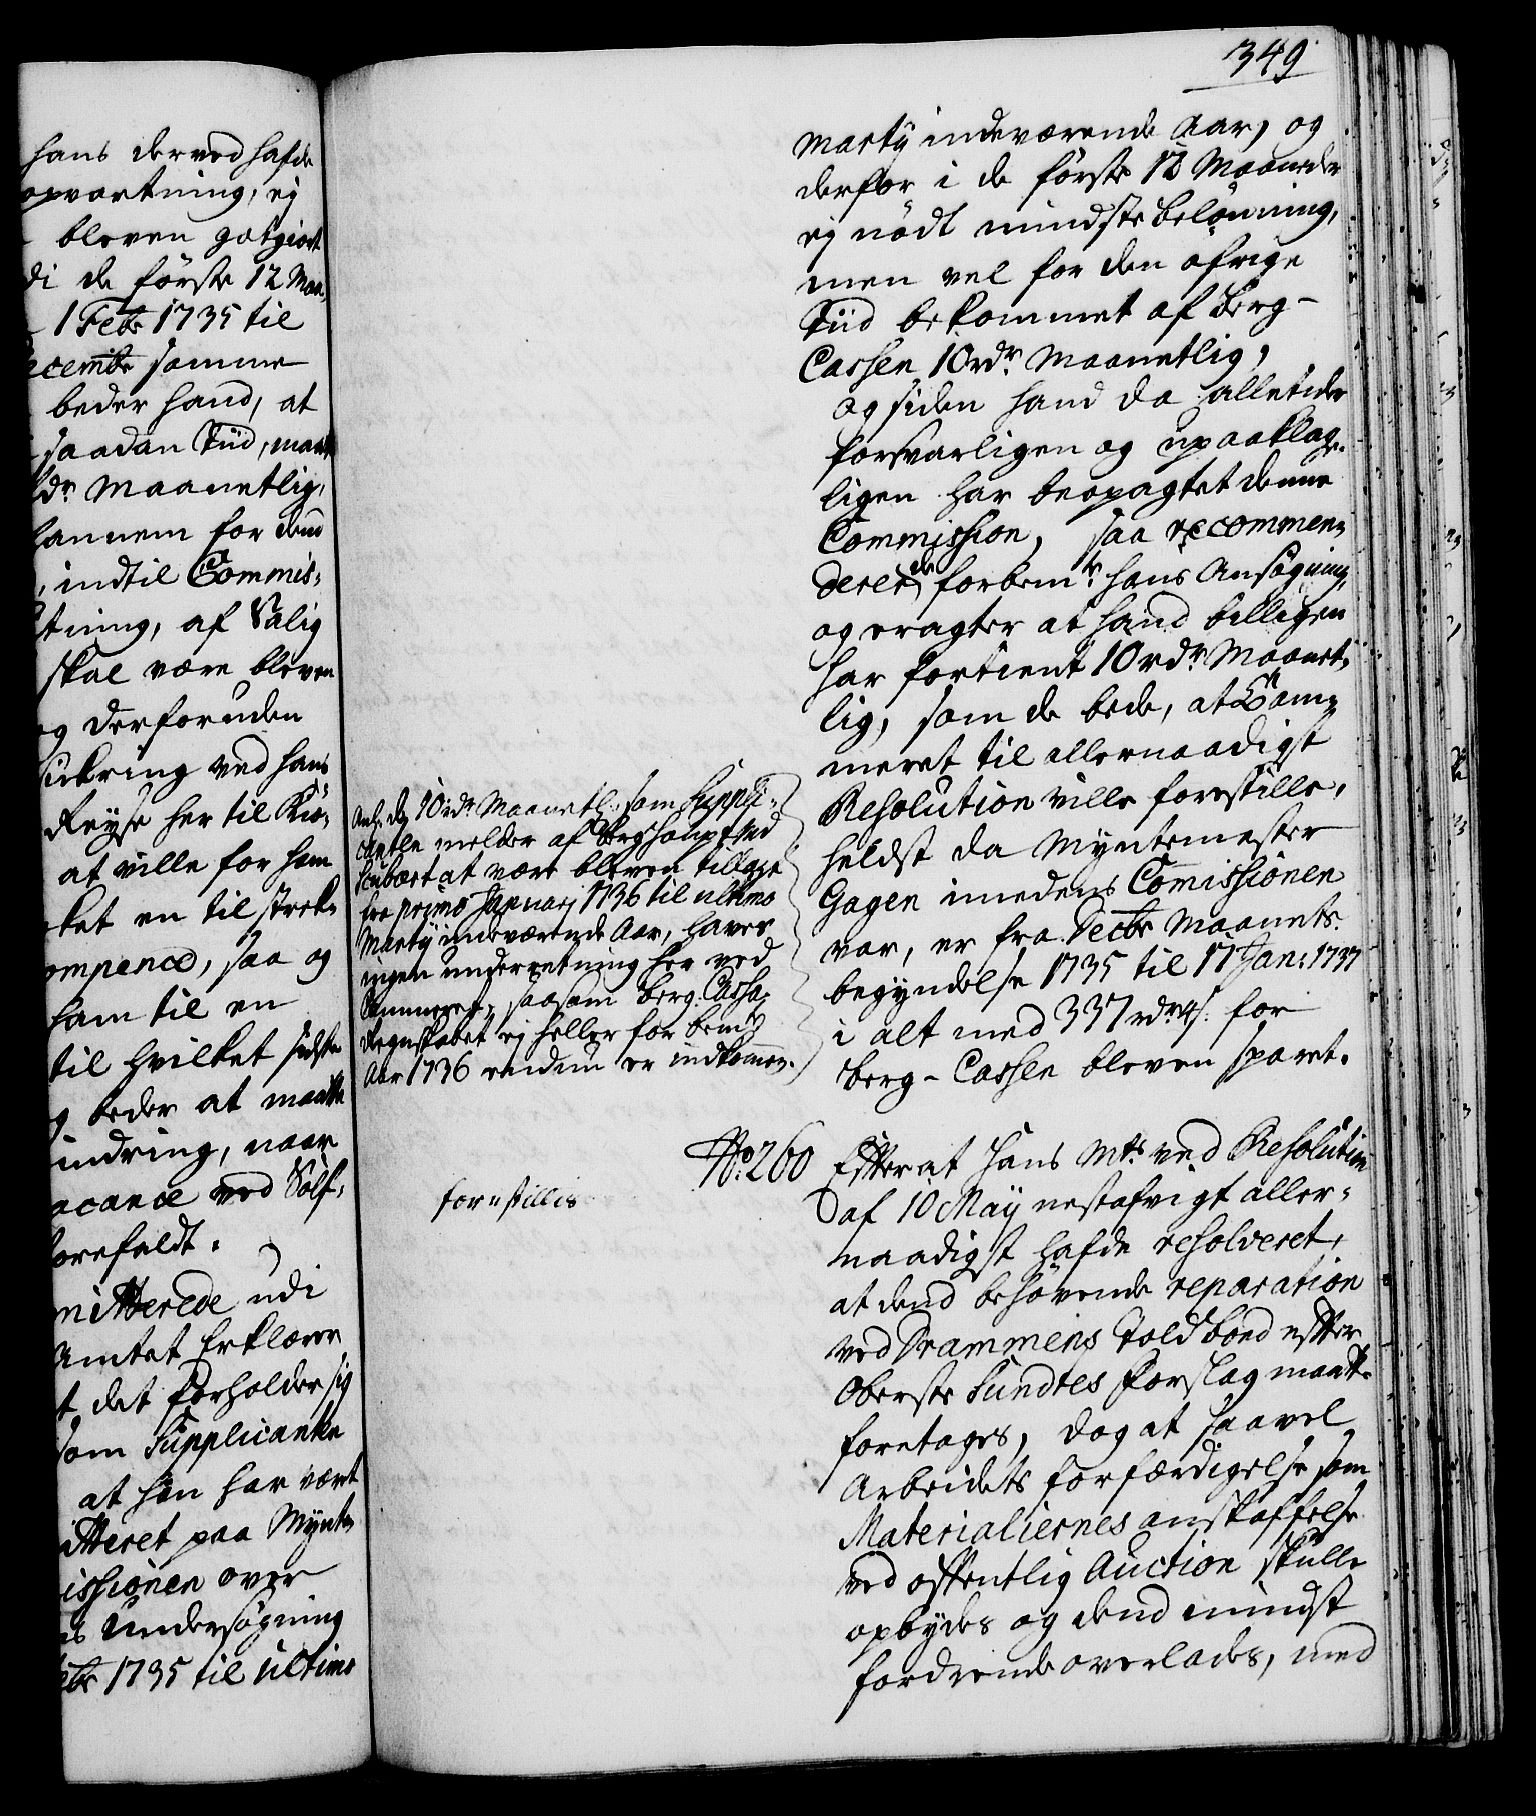 hans derved hafde
opvartning, ej
bleven gotgiort
di de første 12 Maa
1 Febr 1735 til
ecembr samme
beder hand, at
saadan Tiid, maat
dr Maanetlig,
lannem for dend
, indtil Commis,
tning, af Salig
skal være bleven
og derforuden
ved hans
Reyse her til Kiø,
at ville for ham
ket en tilstrek,
ompence, saa og
ham til en
til hvilket sidste
g beder at maatte
indring, naar
acance ved Sølf,
forefaldt.
mitterede udi
Amtet Erklærer
t det forholder sig
som Supplicanten
at han har vært
itteret paa Mynt,
issionen over
s Undersøgning
ebr 1735 til ultimo
349
Marty indeværende Aar, og
derfor i de første 12 Maaneder
ej nødt mindste belønning,
men vel for den øfrige
Tiid bekommet af Berg-
Cassen 10 rdr. Maanetlig,
og siden hand da alletider
forsvarligen og upaaklag,
ligen har beopagtet denne
Commission, saa recommen,
derer de forbemte hans Ansøgning,
og eragter at hand billigen
har fortient 10 rdr Maanet,
lig, som de bede, at Cam,
meret til allernaadigst
Resolution ville forestille,
heldst da Myntemester
Gagen imedens Comissionen
var, er fra Decbr Maanets
begyndelse 1735 til 17 Jan: 1737
i alt med 337 rdr 4 s. for
Berg-Cassen bleven sparet.
Anl: de 10 rdr Maanetl: som Suppli,
cantten melder af Berghauptmd
Schubart at være bleven tillagt
fra primo Januarj 1736 til ultimo
Marty indeværende Aar, haves
ingen underretning her ved
Cammeret, saasom Berg-Casse,
Regnskabet ej heller for bemte
Aar 1736 endnu er indkommen.
No. 260 Efter at Hans Mts ved Resolution
forestillis
af 10 May nestafvigt aller,
naadigst hafde resolveret,
at dend behøvende reparation
ved Drammens Toldboed efter
Oberste Sundtes Forslag maatte
foretages, dog at saavel
Arbeidets forfærdigelse som
Materialiernes anskaffelse
ved offentlig Auction skulle
opbydes og dend mindst
fordrende overlades, med